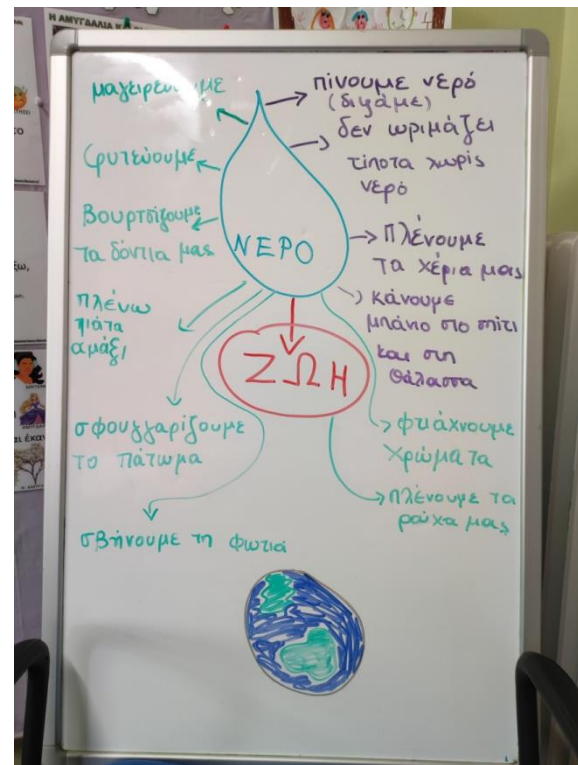 Η ΑΜΥΓΔΑΛΙΑ Κ
μαγειρεύουμε
φυτεύουμε
Βουρτσίζουμε
τα δόντια μας
πλένω
πιάτα
αμάξι
σφουγγαρίζουμε
το πάτωμα
σβήνουμε τη φωτιά
ΝΕΡΟ
ΖΩΗ
πίνουμε νερό
(διψάμε)
δεν ωριμάζει
τίποτα χωρίς
νερό
Πλένουμε
τα χέρια μας
κάνουμε
μπάνιο στο σπίτι
και στη
θάλασσα
φτιάχνουμε
χρώματα
πλένουμε τα
ρούχα μας